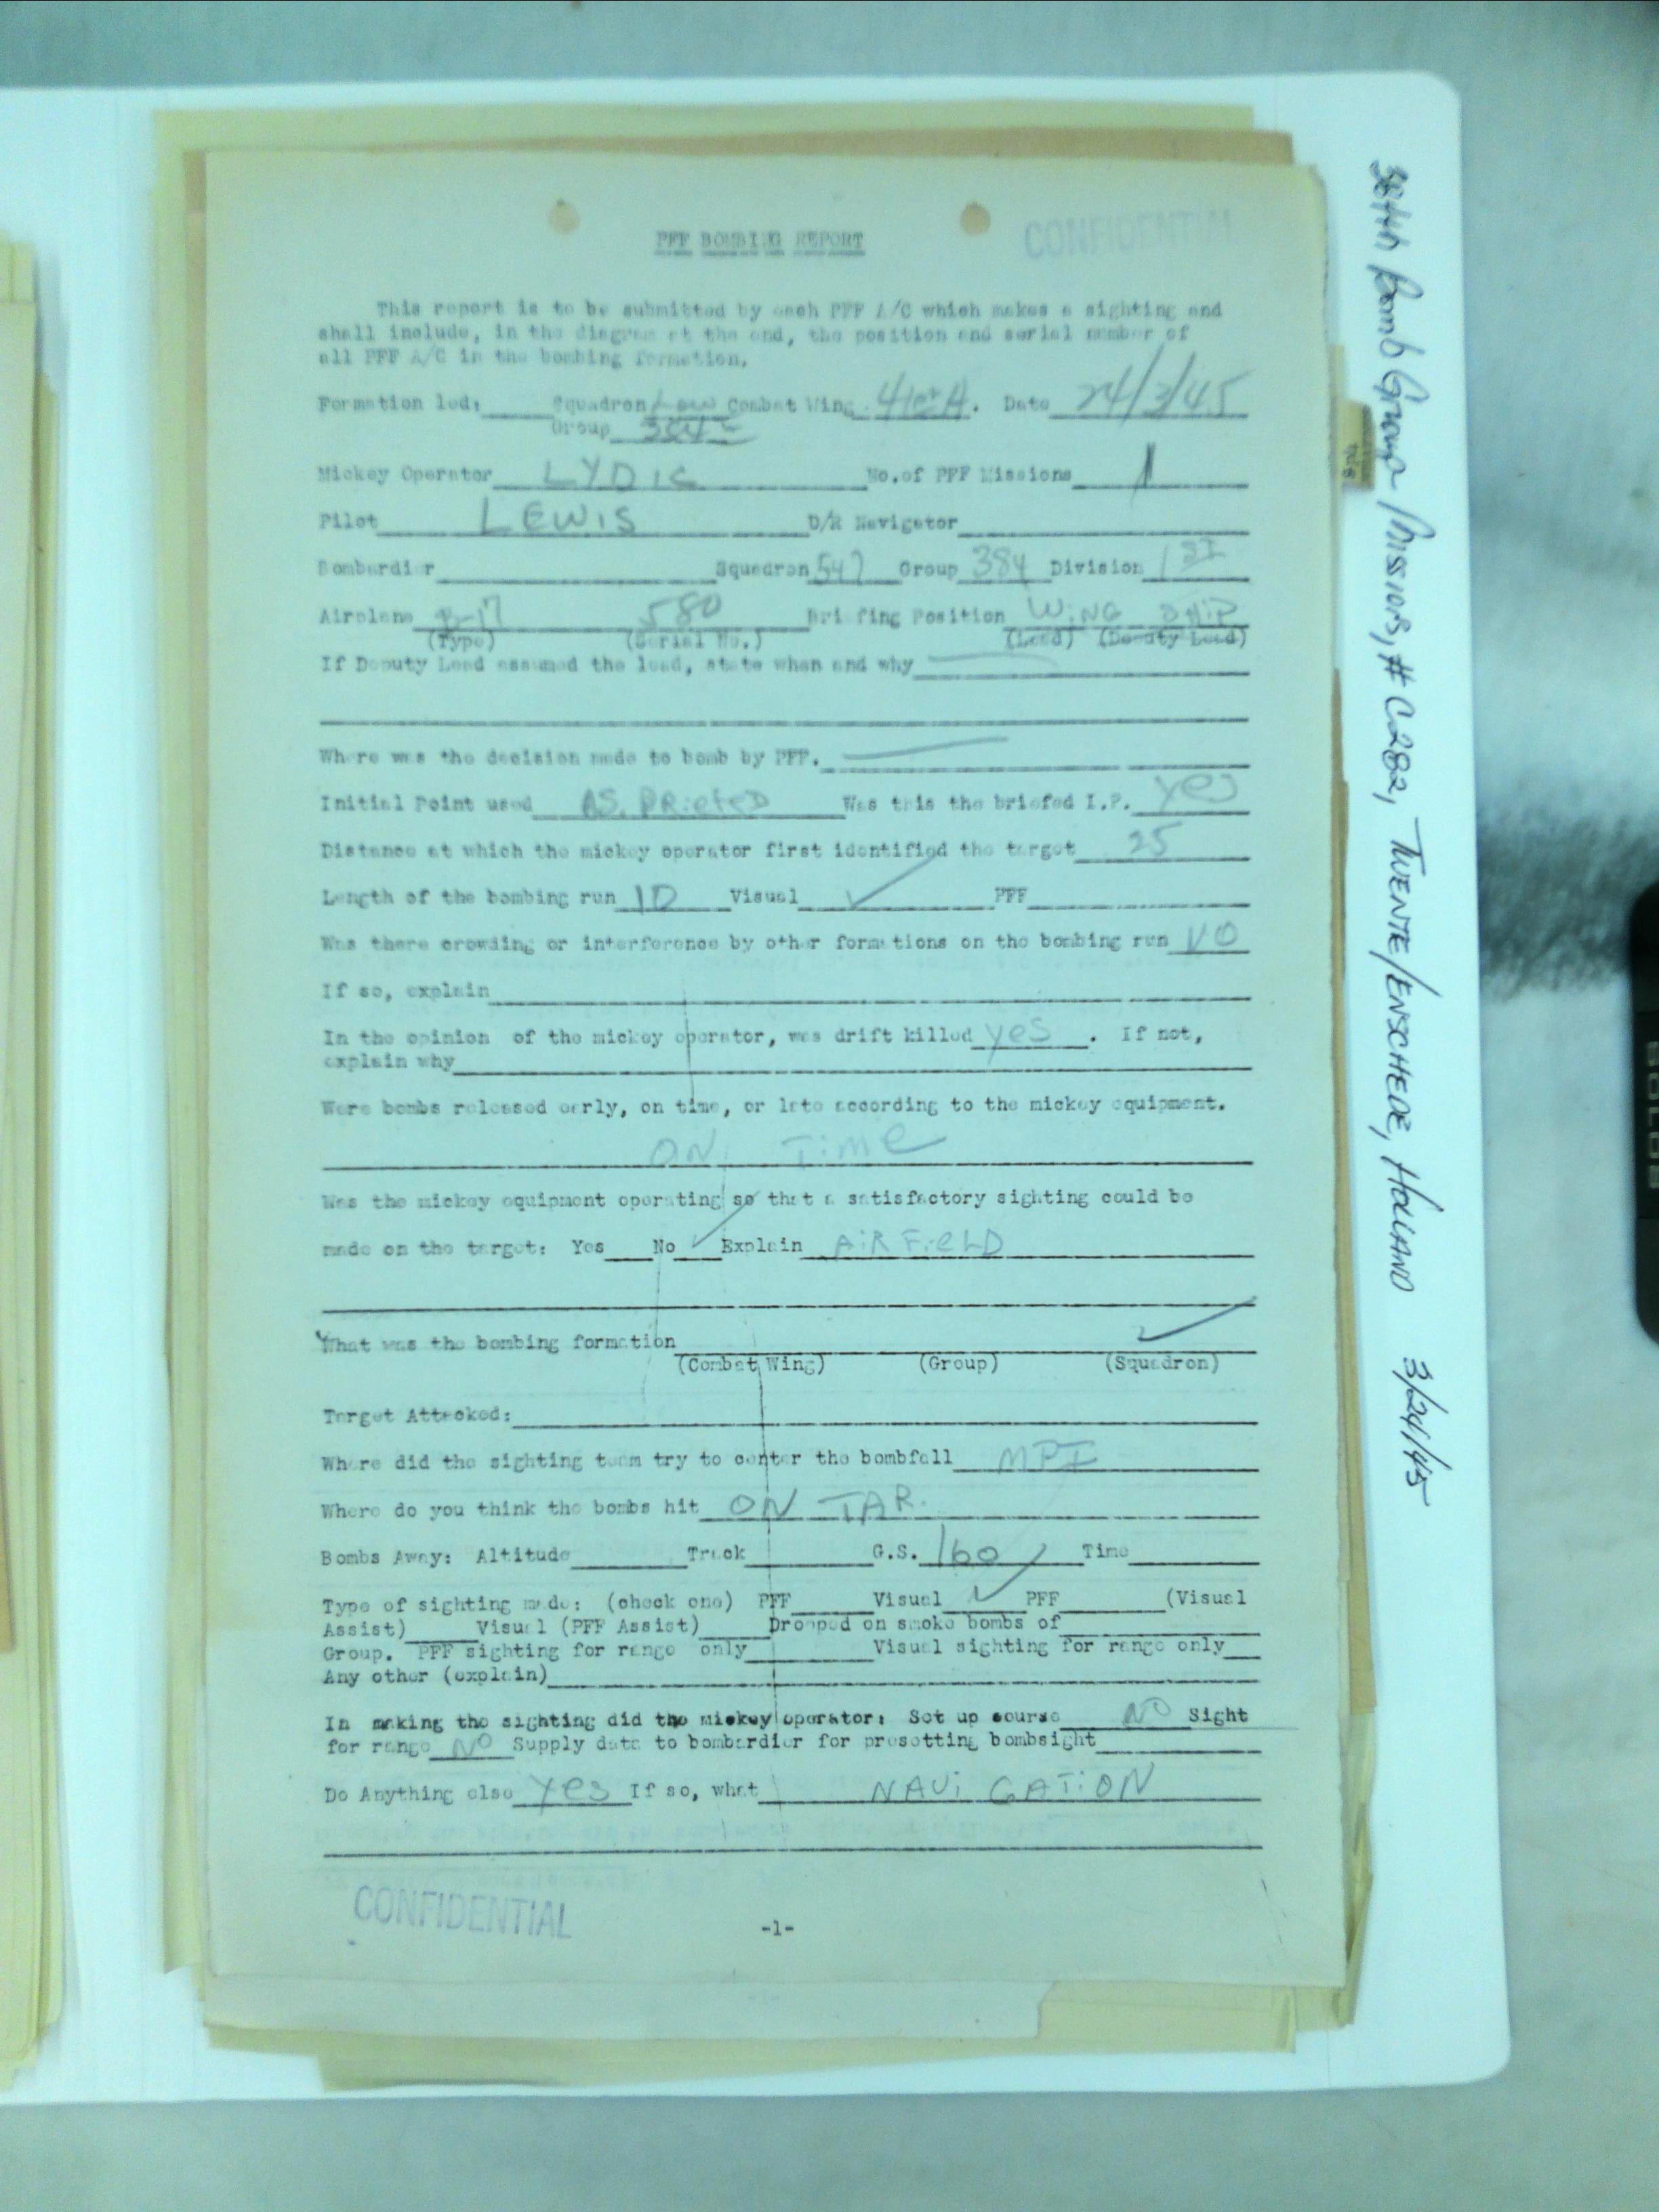 PFF BOMBING REPORT
CONFIDENTIAL
This report is to be submitted by each PFF A/C which makes a sighting and
shall include, in the diagram at the end, the position and serial number of
all PFF A/C in the bombing formation.
Formation led: Squadron Low Combat Wing 41st A. Date 24/3/45
Group 384
Mickey Operator No.of PFF Missions 1
Pilot LEWIS D/R Navigator
Bombardier Squadron 547 Group 384 Division 1st
Airplane B-17 580 Briefing Position WiNG SHiP
(Type) (Serial No.) (Lead) (Deputy Lead)
If Deputy Lead assumed the lead, state when and why
Where was the decision made to bomb by PFF.
Initial Point used AS. Was this the briefed I.P. yes
Distance at which the mickey operator first identified the target 25
Length of the bombing run 10 Visual ✓ PFF
Was there crowding or interference by other formations on the bombing run NO
If so, explain
In the opinion of the mickey operator, was drift killed yes . If not,
explain why
Were bombs released early, on time, or late according to the mickey equipment.
ON Time
Was the mickey equipment operating so that a satisfactory sighting could be
made on the target: Yes No ✓ Explain AiRFieLD
What was the bombing formation ✓
(Combat Wing) (Group) (Squadron)
Target Attacked:
Where did the sighting team try to center the bombfall MPI
Where do you think the bombs hit ON TAR.
Bombs Away: Altitude Track G.S. 160 Time
Type of sighting made: (check one) PFF Visual ✓ PFF (Visual
Assist) Visual (PFF Assist) Dropped on smoke bombs of
Group. PFF sighting for range only Visual sighting for range only
Any other (explain)
In making the sighting did the mickey operator: Set up course NO Sight
for range NO Supply data to bombardier for presetting bombsight
Do Anything else yes If so, what NAViGATiON
CONFIDENTIAL
-1-
384th Bomb Group Missions, # C282, TWENTE/ENSCHEDE, HOLLAND 3/24/45